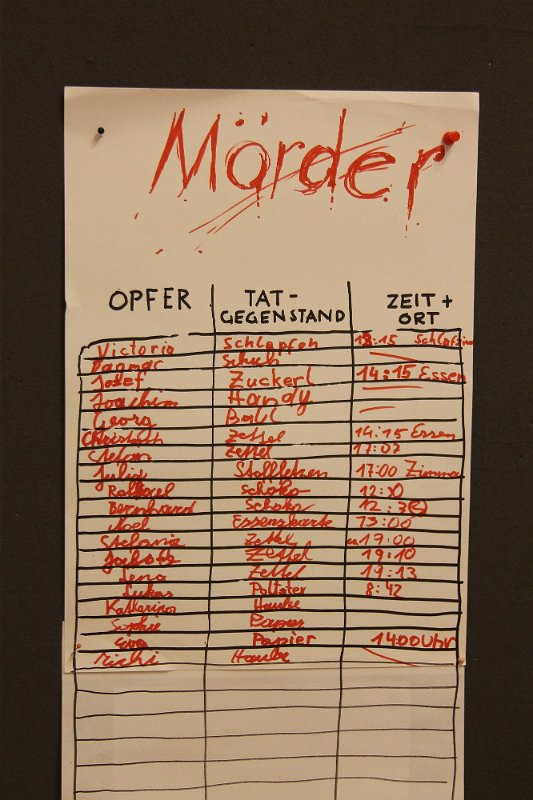 Mörder
OPFER TAT-GEGENSTAND ZEIT + ORT
Victoria Schlapfen 18:15
Dagmar Schuh
Josef Zuckerl 14:15 Essen
Joachim Handy
Georg Ball
Christoph Zettel 14:15 Essen
Stefan Zettel 17:07
Julia Stofffetzen 17:00 Zimmer
Schoko
Bernhard Schoko
Essenskarte 13:00
Stefanie Zettel 17:00
Jakob Zettel 19:10
Lena Zettel 19:13
Lukas Polster 8:42
Katharina Haube
Sophie Papier
Eva Papier 14:00 Uhr
Michi Haube